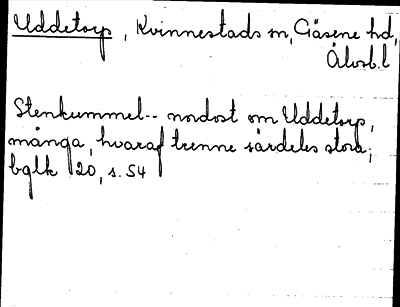 Uddetorp, Kvinnestads sn, Gäsene hd,
Älvsb.l
Stenkummel-- nordost om Uddetorp,
många, hvaraf trenne särdeles stora;
bglk 20, s. 54